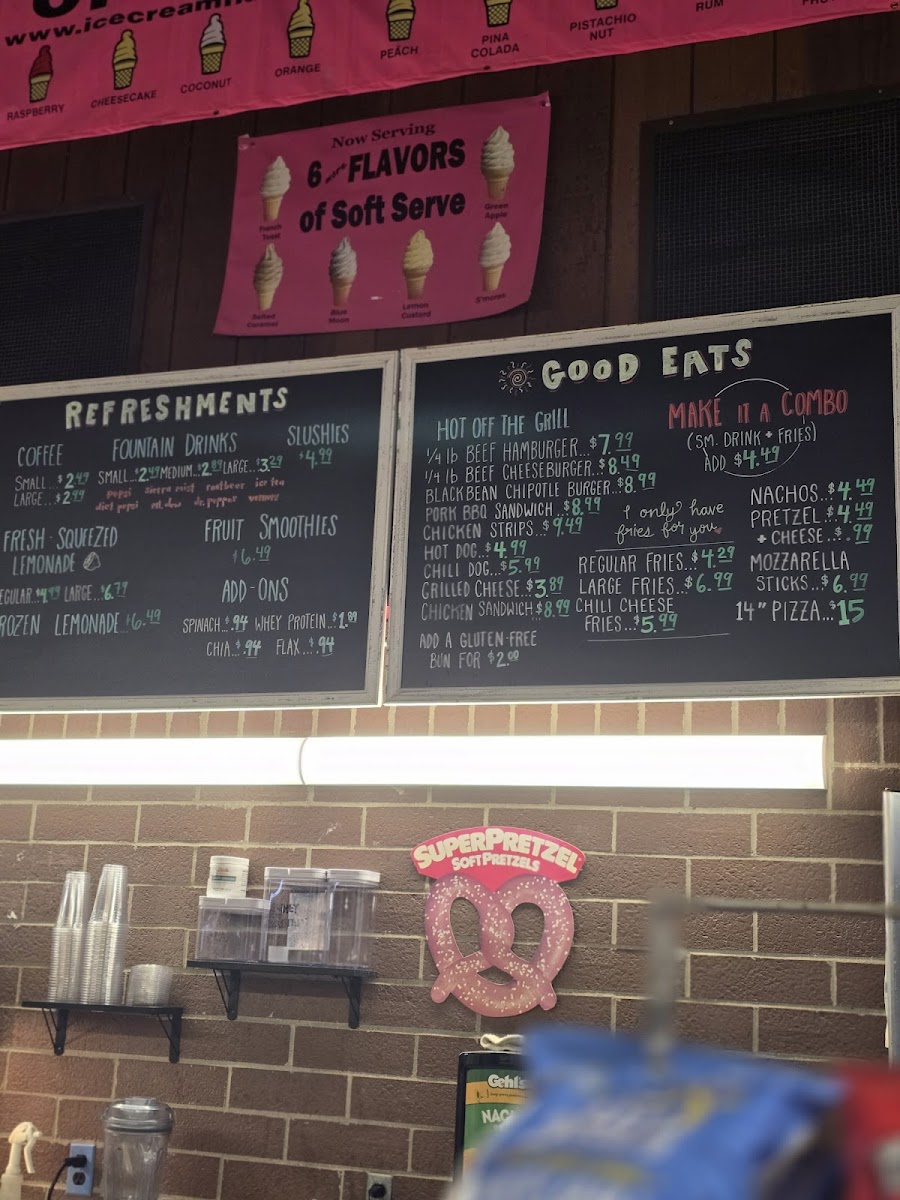 www.icecream
RASPBERRY
CHEESECAKE
COCONUT
ORANGE
PEACH
PINA
COLADA
PISTACHIO
NUT
RUM
Now Serving
6 more FLAVORS
of Soft Serve
French
Toast
Green
Apple
Salted
Caramel
Blue
Moon
Lemon
Custard
S'mores
REFRESHMENTS
COFFEE
SMALL...$2.49
LARGE...$2.99
FOUNTAIN DRINKS
SMALL...$2.49 MEDIUM...$2.89 LARGE...$3.29
pepsi sierra mist rootbeer ice tea
diet pepsi mt. dew dr. pepper
SLUSHIES
$4.99
FRESH-SQUEEZED
LEMONADE
EGULAR..$4.49 LARGE..$6.79
ROZEN LEMONADE..$6.49
FRUIT SMOOTHIES
$6.49
ADD-ONS
SPINACH...$.94 WHEY PROTEIN..$1.89
CHIA...$.94 FLAX...$.94
GOOD EATS
HOT OFF THE GRILL
1/4 lb BEEF HAMBURGER...$7.99
1/4 lb BEEF CHEESEBURGER...$8.49
BLACKBEAN CHIPOTLE BURGER...$8.99
PORK BBQ SANDWICH...$8.99
CHICKEN STRIPS...$9.49
HOT DOG...$4.99
CHILI DOG...$5.99
GRILLED CHEESE.$3.89
CHICKEN SANDWICH$8.99
ADD A GLUTEN-FREE
BUN FOR $2.00
MAKE IT A COMBO
(SM. DRINK + FRIES)
ADD $4.49
I only have
fries for you
REGULAR FRIES...$4.29
LARGE FRIES...$6.99
CHILI CHEESE
FRIES...$5.99
NACHOS..$4.49
PRETZEL..$4.49
+ CHEESE...$.99
MOZZARELLA
STICKS...$6.99
14" PIZZA...$15
SUPERPRETZEL
SOFT PRETZELS
Gehl's